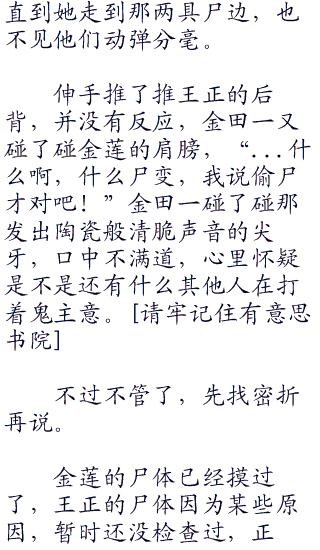 直到她走到那两具尸边，也
不见他们动弹分毫。
伸手推了推王正的后
背，并没有反应，金田一又
碰了碰金莲的肩膀，“...什
么啊，什么尸变，我说偷尸
才对吧！”金田一碰了碰那
发出陶瓷般清脆声音的尖
牙，口中不满道，心里怀疑
是不是还有什么其他人在打
着鬼主意。[请牢记住有意思
书院]
不过不管了，先找密折
再说。
金莲的尸体已经摸过
了，王正的尸体因为某些原
因，暂时还没检查过，正